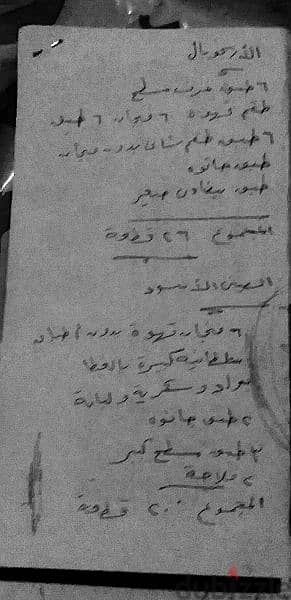 الأركوبال
٦ طبق غرف مسطح
طقم قهوة ٦ فنجان ٦ طبق
٦ طبق طقم شاى بدون فنجان
طبق جاتوه
طبق بيضاوى صغير
المجموع ٢٦ قطعة
الصينى الأسود
٦ فنجان قهوة بدون أطباق
سلطانية كبيرة بالغطا
براد وسكرية ولبانة
٢ طبق جاتوه
٣ طبق مسطح كبير
٢ ملاحة
المجموع ٢٠ قطعة
dubizzle